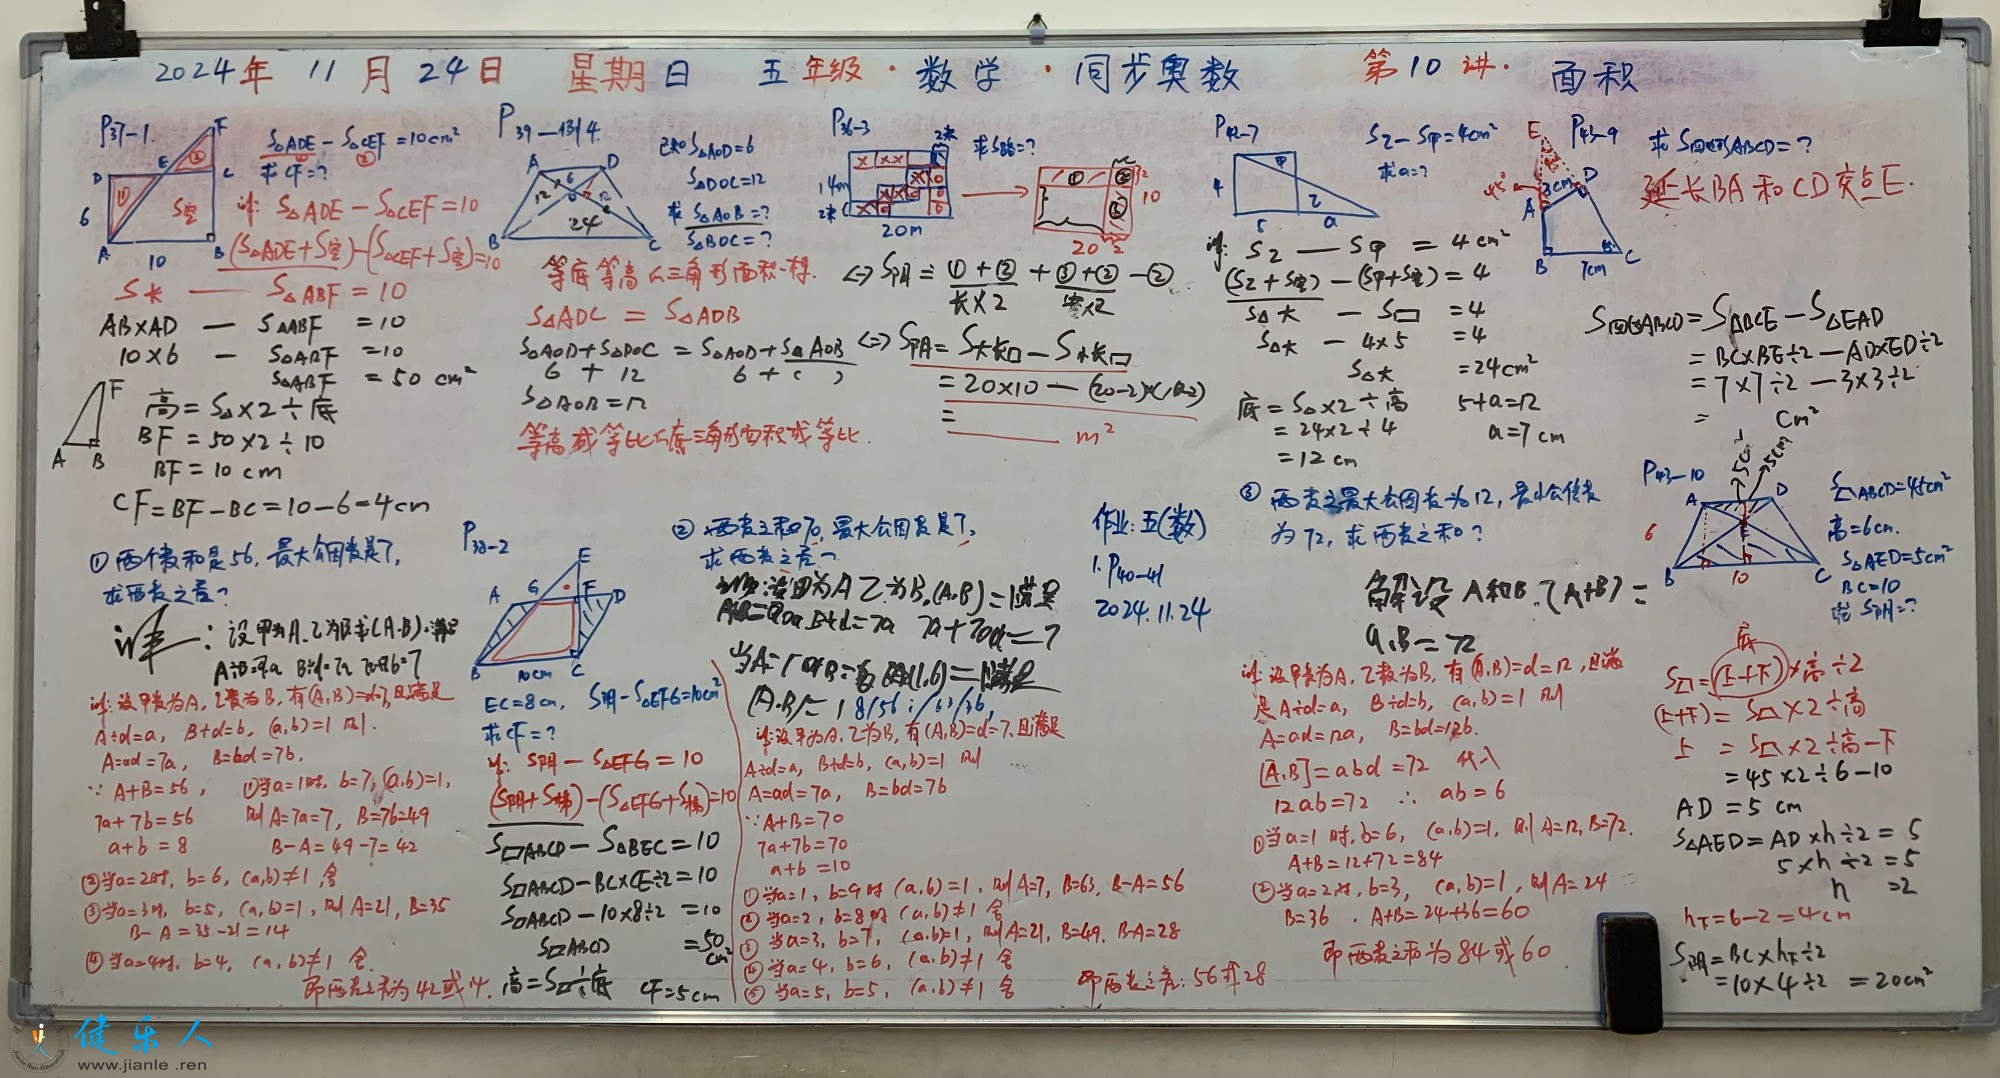 2024年 11月24日 星期日 五年级·数学·同步奥数 第10讲· 面积
P37-1
S△ADE - S△CEF = 10cm²
① ②
求CF=?
F
E
D
C
A
B
6
10
①
②
S空
解: S△ADE - S△CEF = 10
(S△ADE + S空) - (S△CEF + S空) = 10
S长 — S△ABF = 10
AB×AD — S△ABF = 10
10×6 - S△ABF = 10
S△ABF = 50 cm²
F
A B
高 = S△×2÷底
BF = 50×2÷10
BF = 10 cm
CF = BF - BC = 10 - 6 = 4cm
P39-13/4
A D
B C
6
12
12
24
已知 S△AOD = 6
S△DOC = 12
求 S△AOB = ?
S△BOC = ?
等底等高△三角形面积一样.
S△ADC = S△ADB
S△AOD + S△DOC = S△AOD + S△AOB
6 + 12 6 + ( )
S△AOB = 12
P36-3
2米
14m
2米
20m
求S路=?
①
②
10
20
2
⇔ S阴 = ①+② + ③+② - ②
长×2 宽×2
⇔ S阴 = S大长□ - S小长□
= 20×10 -
=
m²
P42-7
S乙 - S甲 = 4cm²
求a=?
甲
乙
4
5
a
解: S乙 — S甲 = 4cm²
(S乙+S空) - (S甲+S空) = 4
S△大 - S□ = 4
S△大 - 4×5 = 4
S△大 = 24cm²
底 = S△×2÷高
= 24×2÷4
= 12 cm
5+a=12
a=7cm
P43-9
E
A
D
B
C
3cm
7cm
求S四边形ABCD=?
延长BA和CD交点E.
S四边ABCD = S△BCE - S△EAD
= BC×BE÷2 - AD×ED÷2
= 7×7÷2 - 3×3÷2
= cm²
P43-10
A D
E
B C
6
10
h
5cm²
5cm
S ABCD=45cm²
高=6cm.
S△AED=5cm²
BC=10
求S阴=?
底
S = (上+下)×高÷2
(上+下) = S×2÷高
上 = S×2÷高-下
= 45×2÷6-10
AD = 5 cm
S△AED = AD×h÷2 = 5
5×h÷2 = 5
h = 2
h下=6-2=4cm
S阴 = BC×h下÷2
= 10×4÷2 = 20cm²
① 两个数和是56, 最大公因数是7,
求两数之差?
解:设甲数为A, 乙数为B, 有(A,B)=d=7, 且满足
A÷d=a, B÷d=b, (a,b)=1 则.
A=ad=7a, B=bd=7b.
∵ A+B=56,
7a+7b=56
a+b=8
①当a=1时, b=7, (a,b)=1,
则A=7a=7, B=7b=49
B-A=49-7=42
②当a=2时, b=6, (a,b)≠1, 舍
③当a=3时, b=5, (a,b)=1, 则A=21, B=35
B-A=35-21=14
④当a=4时, b=4, (a,b)≠1 舍.
P38-2
E
A G F D
B C
10cm
EC=8cm, S阴-S△EFG=10cm²
求CF=?
解: S阴 - S△EFG = 10
(S阴+S梯) - (S△EFG+S梯) = 10
S▱ABCD - S△BEC = 10
S▱ABCD - BC×CE÷2 = 10
S▱ABCD - 10×8÷2 = 10
S▱ABCD = 50 cm²
高=S▱÷底 CF=5cm
② 两数之和70, 最大公因数是7,
求两数之差?
解:设甲为A, 乙为B, 有(A,B)=d=7, 且满足
A÷d=a, B÷d=b, (a,b)=1 则
A=ad=7a, B=bd=7b
∵ A+B=70
7a+7b=70
a+b=10
①当a=1, b=9时 (a,b)=1, 则A=7, B=63, B-A=56
②当a=2, b=8时 (a,b)≠1 舍
③当a=3, b=7, (a,b)=1, 则A=21, B=49, B-A=28
④当a=4, b=6, (a,b)≠1 舍
⑤当a=5, b=5, (a,b)≠1 舍
即两数之差: 56或28
作业:五(数)
1. P40-41
2024.11.24
③ 两数之最大公因数为12, 最小公倍数
为72, 求两数之和?
解设A和B. (A+B) =
解:设甲数为A, 乙数为B, 有(A,B)=d=12, 且满
足A÷d=a, B÷d=b, (a,b)=1 则
A=ad=12a, B=bd=12b.
[A,B]=abd=72 代入
12ab=72 ∴ ab=6
①当a=1时, b=6, (a,b)=1, 则A=12, B=72.
A+B=12+72=84
②当a=2时, b=3, (a,b)=1, 则A=24
B=36. A+B=24+36=60
即两数之和为84或60
健乐人
www.jianle.ren